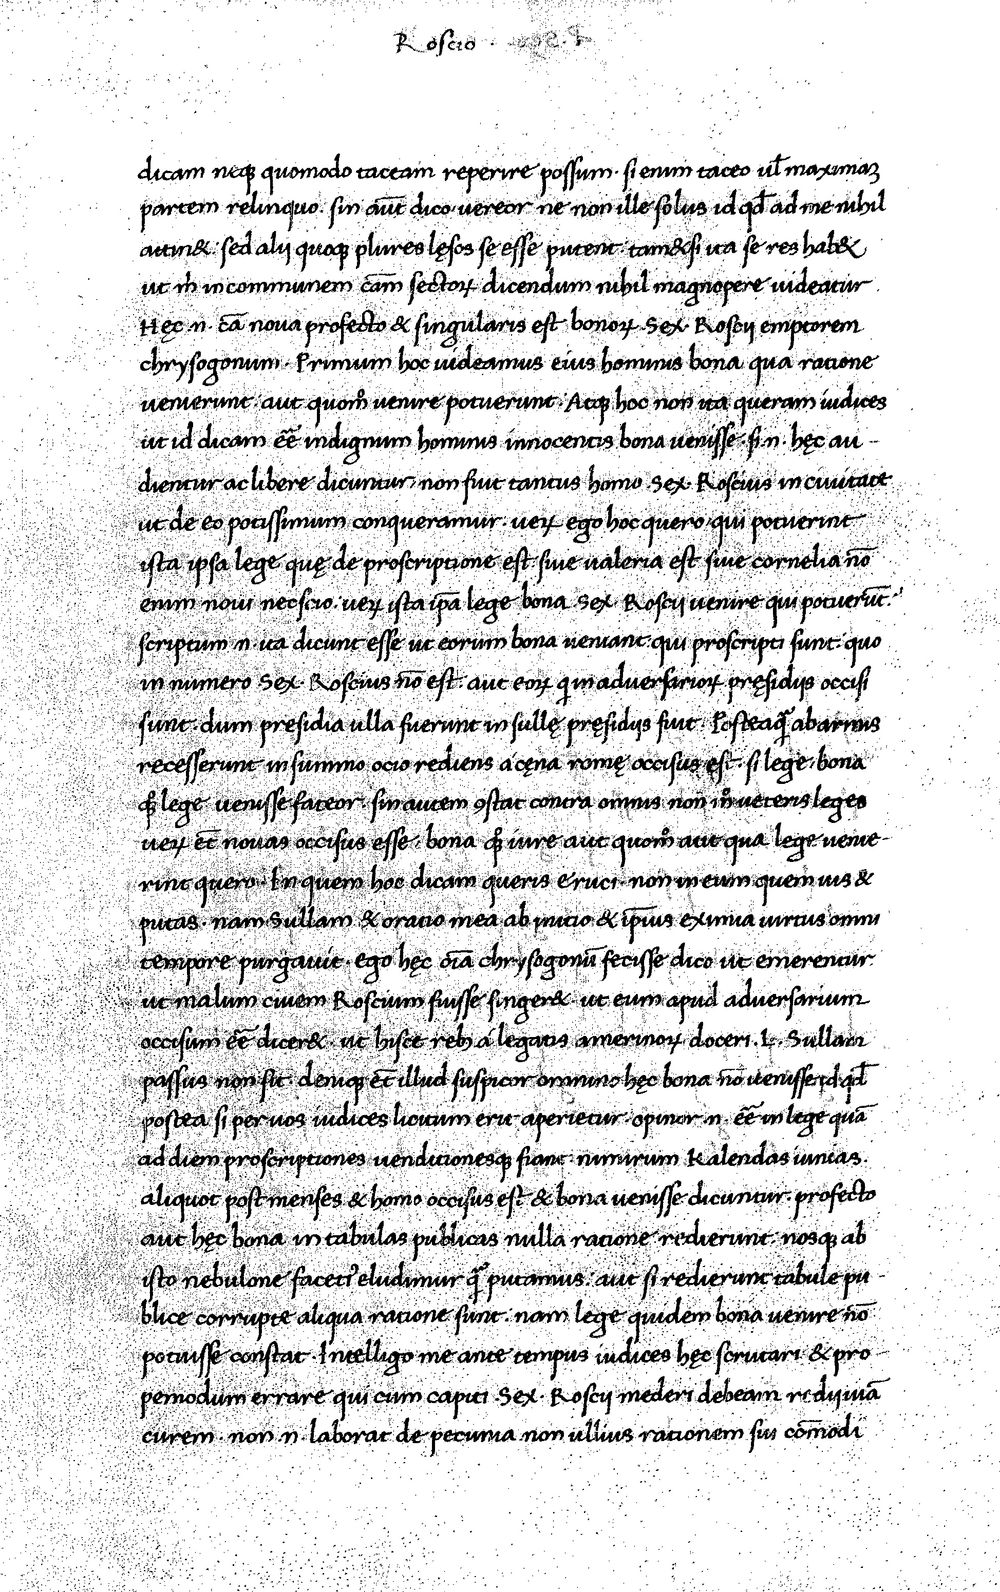 Roscio
dicam neqꝫ quomodo taceam reperire possum · si enim taceo ul̄ maximaꝫ
partem relinquo · sin aūt dico vereor ne non ille solus id qd̄ ad me nihil
attin& · sed alij quoqꝫ plures lęsos se esse putent · tam&si ita se res hab&
ut m̄ in communem cām sectoꝝ dicendum nihil magnopere videatur
Hęc ·n· cā nova profecto & singularis est · bonoꝝ Sex Roscij emptorem
chrysogonum · Primum hoc videamus eius hominis bona qua ratione
venierunt · aut quom̊ venire potuerunt · Atqꝫ hoc non ita queram iudices
ut id dicam eē̄ indignum hominis innocentis bona venisse · si ·n· hęc au-
dientur ac libere dicuntur · non fuit tantus homo Sex · Roscius in civitate
ut de eo potissimum conqueramur · veꝝ ego hoc quero qui potuerint
ista ipsa lege quę de proscriptione est sive valeria est sive cornelia nō
enim novi nec scio · veꝝ ista ip̄a lege bona Sex · Roscij venire qui potuerūt ·
scriptum ·n· ita dicunt esse ut eorum bona veniant qui proscripti sunt · quo
in numero Sex · Roscius nō est · aut eoꝝ q in adversarioꝝ pręsidijs occisi
sunt · dum presidia ulla fuerunt in sullę pręsidijs fuit · Posteaq̄ ab armis
recesserunt in summo ocio rediens a cęna romę occisus est · si lege · bona
qꝫ lege venisse fateor · sin autem ꝯstat contra omnis non m̊ veteris leges
veꝝ et̄ novas occisus esse · bona q̊ iure aut quom̊ aut qua lege venie-
rint quero · In quem hoc dicam queris eruci · non in eum quem vis &
putas · nam Sullam & oratio mea ab initio & ip̄ius eximia virtus omni
tempore purgavit · ego hęc oīa chrysogonū fecisse dico ut emerentur
ut malum civem Roscium fuisse finger& ut eum apud adversarium
occisum eē̄ dicer& · ut hisce rebꝫ a legatis amerinoꝝ doceri · L · Sullam
passus non sit · deniqꝫ et̄ illud suspicor omnino hęc bona nō venisse id qd̄
postea si per vos iudices licitum erit aperietur · opinor ·n· eē̄ in lege quā
ad diem proscriptiones venditionesqꝫ fiant · nimirum Kalendas iunias ·
aliquot post menses & homo occisus est & bona venisse dicuntur · profecto
aut hęc bona in tabulas publicas nulla ratione redierunt · nosqꝫ ab
isto nebulone faceti᾽ eludimur q̄ putamus · aut si redierunt tabule pu-
blice corrupte aliqua ratione sunt · nam lege quidem bona venire nō
potuisse constat · Intelligo me ante tempus iudices hęc scrutari & pro
pemodum errare qui cum capiti Sex · Roscij mederi debeam redivivā
curem · non ·n· laborat de pecunia non ullius rationem sui cōmodi